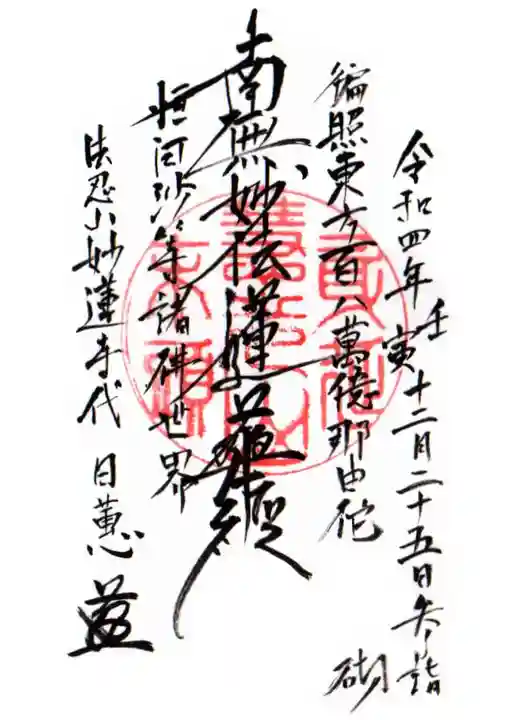 令和四年壬寅十二月二十五日参詣
徧照東方百八萬億那由佗
南無妙法蓮華経
恒河沙等諸佛世界
妙蓮寺代 日蕙